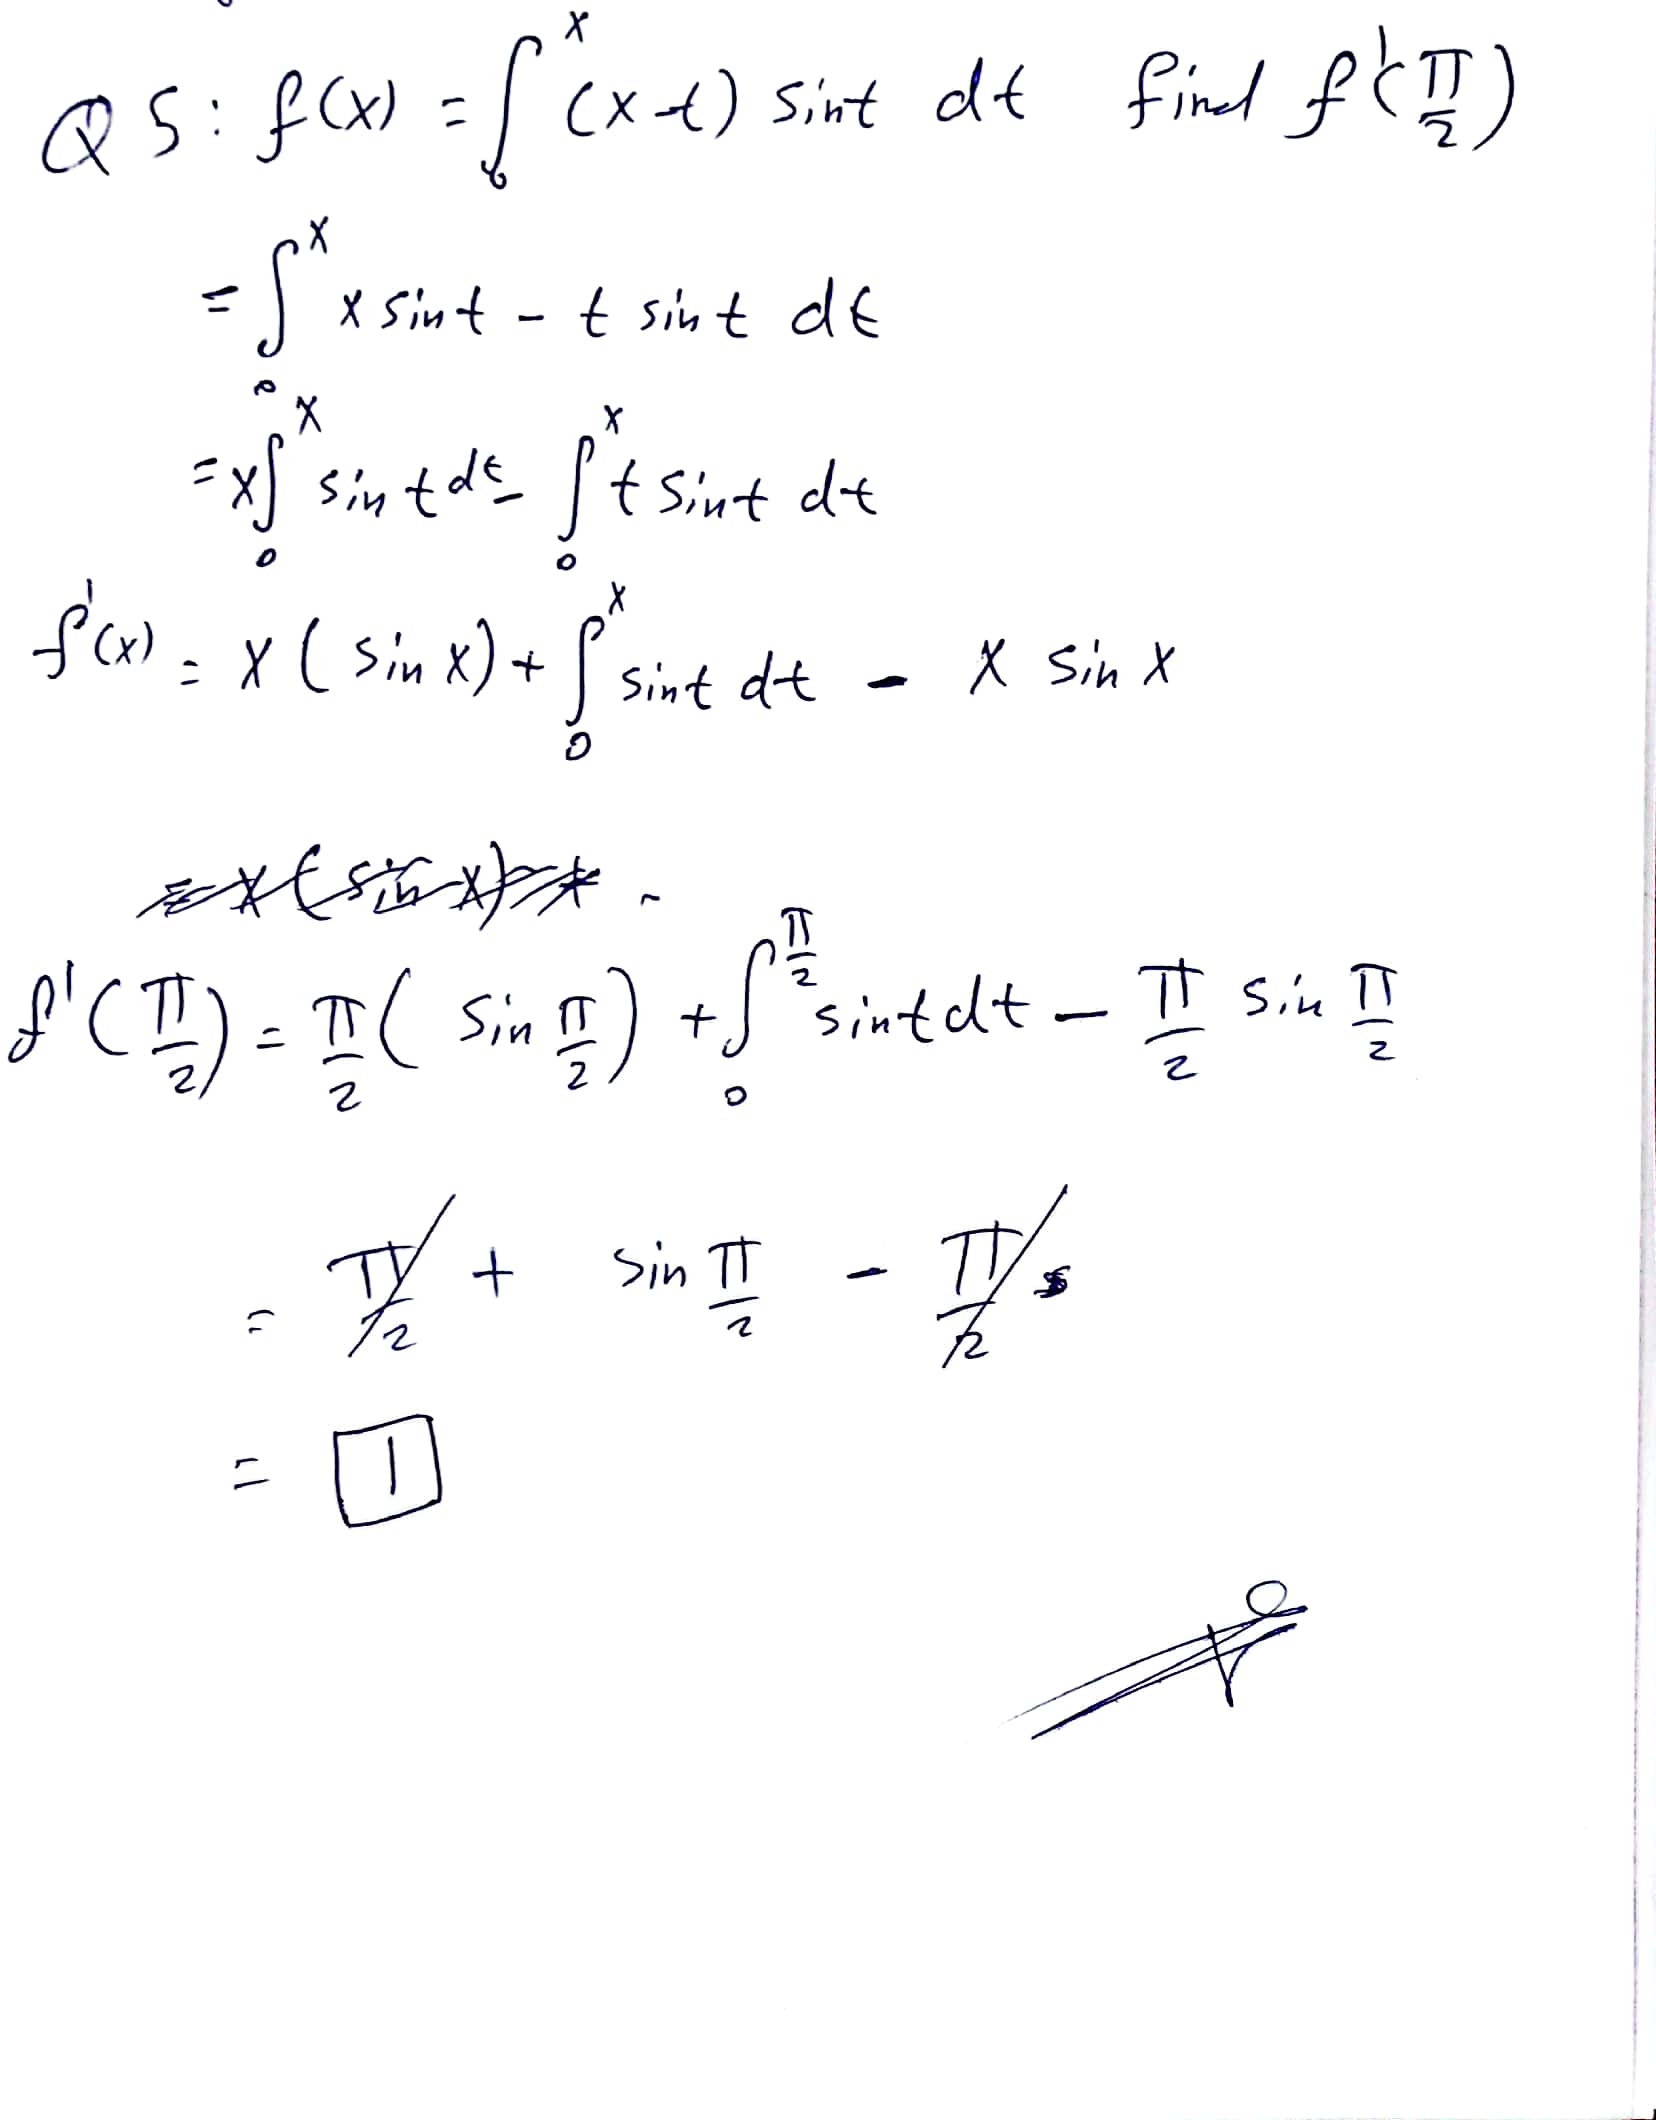 Q5: f(x) = ∫₀ˣ (x-t) sint dt find f'(π/2)
= ∫₀ˣ x sint - t sint dt
= x∫₀ˣ sint dt - ∫₀ˣ t sint dt
f'(x) = x (sin x) + ∫₀ˣ sint dt - x sin x
= x (sin x) +
f'(π/2) = π/2 (sin π/2) + ∫₀^(π/2) sint dt - π/2 sin π/2
= π/2 + sin π/2 - π/2
= 1